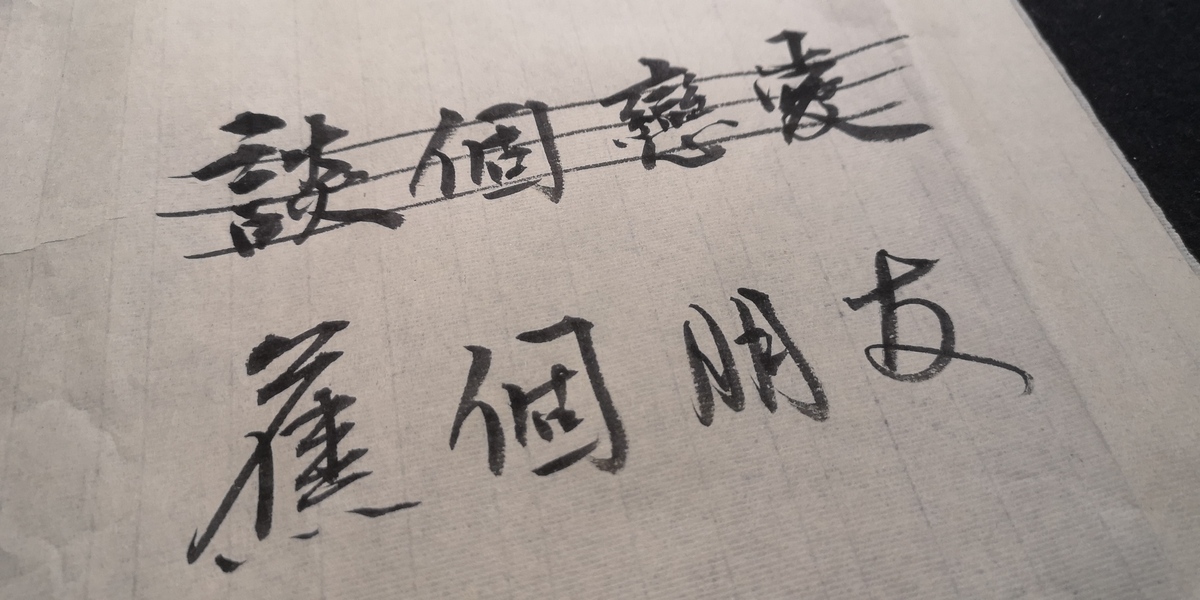 談個戀愛
蕉個朋友